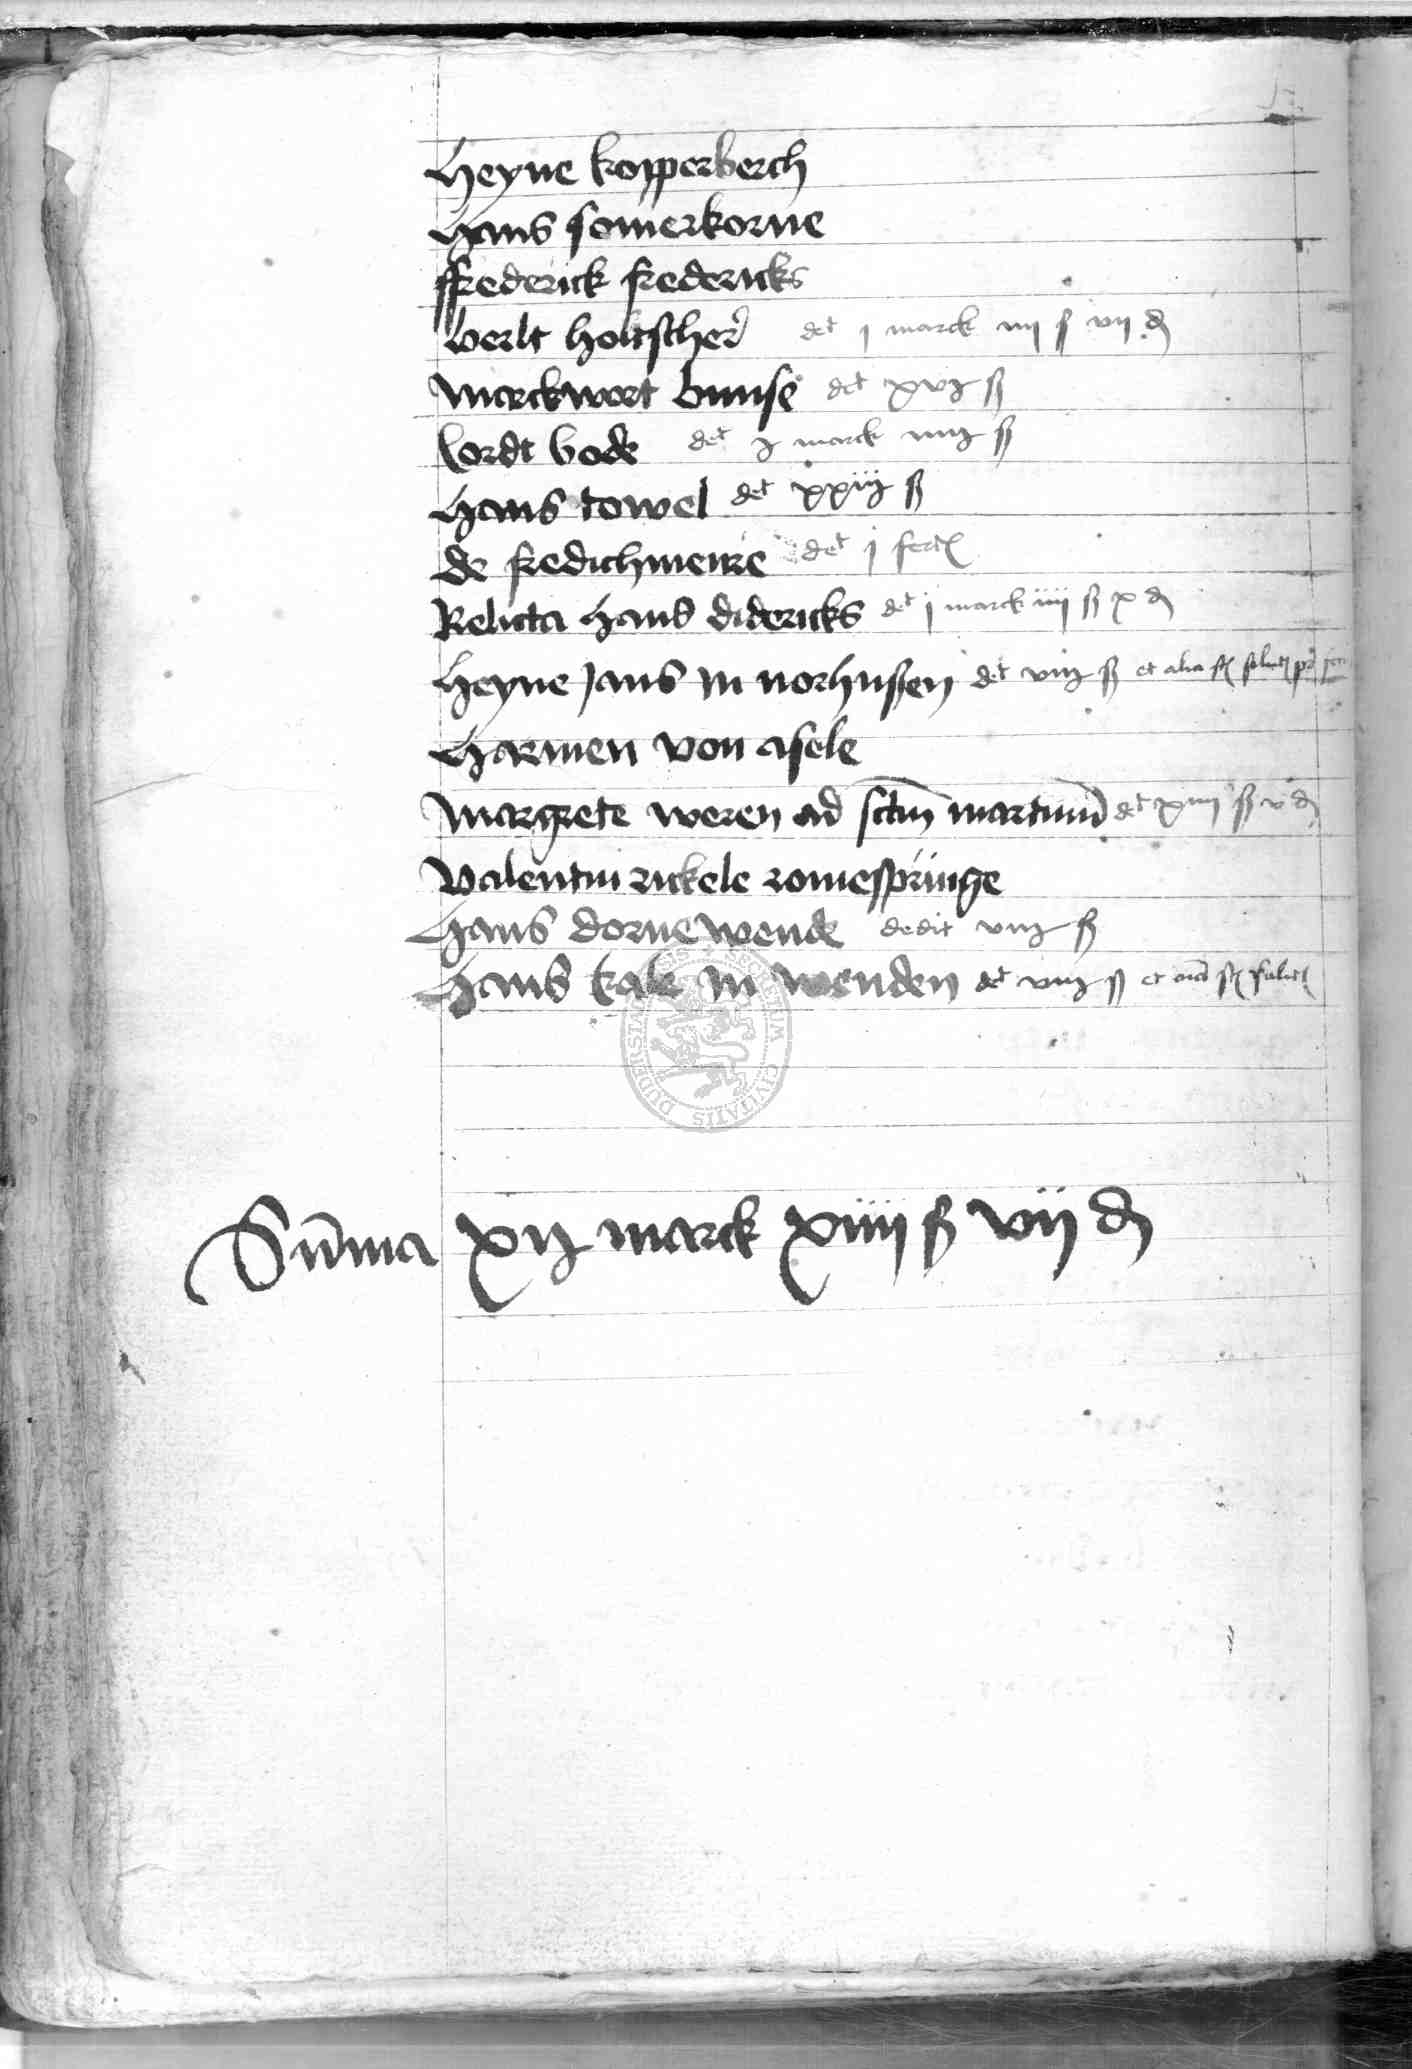 Heyne kopperberch
Hans somerkorne
ffrederick fredericks
Berlt holtscher det j marck iiij ß vij d
Marckwort bunse det xvj ß
Cordt bode det j marck iiij ß
Hans towel det xxiij ß
de fredichmeire det j fert
Relicta Hans didericks det j marck iiij ß x d
Heyne Jans in norhußen det viij ß et alia
Harmen von asele
Margrete weren ad sctm martinu det xiiij ß v d
Valentin rickele romespringe
Hans dornewende dedit viij ß
Hans kale in wenden det viij ß et
SIGILLUM SECRETUM CIVITATIS DUDERSTADENSIS
Suma xij marck xiiij ß vij d